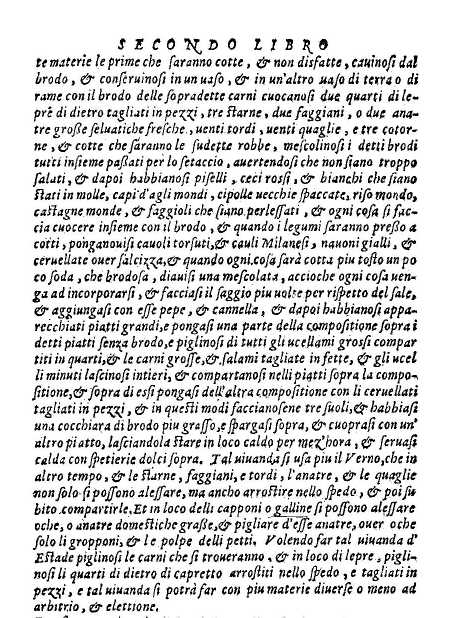 SECONDO LIBRO
te materie le prime che saranno cotte, & non disfatte, cauinosi dal
brodo, & conseruinosi in un uaso, & in un'altro uaso di terra o di
rame con il brodo delle sopradette carni cuocanosi due quarti di le-
pre di dietro tagliati in pezzi, tre starne, due faggiani, o due ana-
tre grosse seluatiche fresche, uenti tordi, uenti quaglie, e tre cotor-
ne, & cotte che saranno le sudette robbe, mescolinosi i detti brodi
tutti insieme passati per lo setaccio, auertendosi che non siano troppo
salati, & dapoi habbianosi piselli, ceci rossi, & bianchi che siano
stati in molle, capi d'agli mondi, cipolle uecchie spaccate, riso mondo,
castagne monde, & faggioli che siano perlessati, & ogni cosa si fac-
cia cuocere insieme con il brodo, & quando i legumi saranno presso a
cotti, ponganouisi cauoli torsuti, & cauli Milanesi, nauoni gialli, &
ceruellate ouer salcizza, & quando ogni cosa sarà cotta piu tosto un po
co soda, che brodosa, diauisi una mescolata, accioche ogni cosa uen-
ga ad incorporarsi, & facciasi il saggio piu uolte per rispetto del sale,
& aggiungasi con esse pepe, & cannella, & dapoi habbianosi appa-
recchiati piatti grandi, e pongasi una parte della compositione sopra i
detti piatti senza brodo, e piglinosi di tutti gli ucellami grossi compar
titi in quarti, & le carni grosse, & salami tagliate in fette, & gli ucel
li minuti lascinosi intieri, & compartanosi nelli piatti sopra la compo-
sitione, & sopra di essi pongasi dell'altra compositione con li ceruellati
tagliati in pezzi, & in questi modi faccianosene tre suoli, & habbiasi
una cocchiara di brodo piu grasso, e spargasi sopra, & cuoprasi con un'
altro piatto, lasciandola stare in loco caldo per mez'hora, & seruasi
calda con spetierie dolci sopra. Tal uiuanda si usa piu il Verno, che in
altro tempo, & le starne, faggiani, e tordi, l'anatre, & le quaglie
non solo si possono alessare, ma ancho arrostire nello spedo, & poi su-
bito compartirle. Et in loco delli capponi o galline si possono alessare
oche, o anatre domestiche grasse, & pigliare d'esse anatre, ouer oche
solo li gropponi, & le polpe delli petti. Volendo far tal uiuanda d'
Estade piglinosi le carni che si troueranno, & in loco di lepre, pigli-
nosi li quarti di dietro di capretto arrostiti nello spedo, e tagliati in
pezzi, e tal uiuanda si potrà far con piu materie diuerse o meno ad
arbitrio, & elettione.